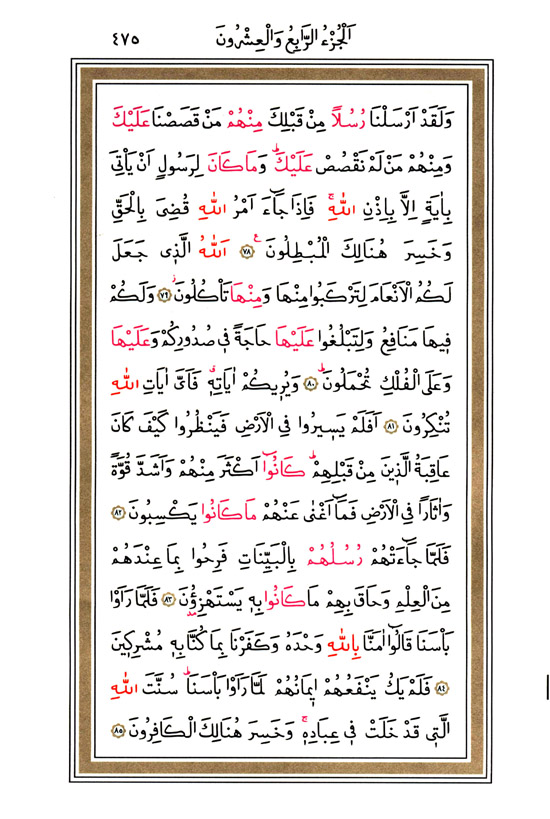 اَلْجُزْءُ الرَّابِعُ وَالْعِشْرُونَ ٤٧٥
وَلَقَدْ اَرْسَلْنَا رُسُلاً مِنْ قَبْلِكَ مِنْهُمْ مَنْ قَصَصْنَا عَلَيْكَ
وَمِنْهُمْ مَنْ لَمْ نَقْصُصْ عَلَيْكَۜ وَمَا كَانَ لِرَسُولٍ اَنْ يَأْتِيَ
بِاٰيَةٍ اِلَّا بِاِذْنِ اللّٰهِۚ فَاِذَا جَٓاءَ اَمْرُ اللّٰهِ قُضِيَ بِالْحَقِّ
وَخَسِرَ هُنَالِكَ الْمُبْطِلُونَ۟ ﴿٧٨﴾ اَللّٰهُ الَّذ۪ي جَعَلَ
لَكُمُ الْاَنْعَامَ لِتَرْكَبُوا مِنْهَا وَمِنْهَا تَأْكُلُونَۘ ﴿٧٩﴾ وَلَكُمْ
ف۪يهَا مَنَافِعُ وَلِتَبْلُغُوا عَلَيْهَا حَاجَةً ف۪ي صُدُورِكُمْ وَعَلَيْهَا
وَعَلَى الْفُلْكِ تُحْمَلُونَۜ ﴿٨٠﴾ وَيُر۪يكُمْ اٰيَاتِه۪ۗ فَاَيَّ اٰيَاتِ اللّٰهِ
تُنْكِرُونَ ﴿٨١﴾ اَفَلَمْ يَس۪يرُوا فِي الْاَرْضِ فَيَنْظُرُوا كَيْفَ كَانَ
عَاقِبَةُ الَّذ۪ينَ مِنْ قَبْلِهِمْۜ كَانُٓوا اَكْثَرَ مِنْهُمْ وَاَشَدَّ قُوَّةً
وَاٰثَاراً فِي الْاَرْضِ فَمَٓا اَغْنٰى عَنْهُمْ مَا كَانُوا يَكْسِبُونَ ﴿٨٢﴾
فَلَمَّا جَٓاءَتْهُمْ رُسُلُهُمْ بِالْبَيِّنَاتِ فَرِحُوا بِمَا عِنْدَهُمْ
مِنَ الْعِلْمِ وَحَاقَ بِهِمْ مَا كَانُوا بِه۪ يَسْتَهْزِؤُ۫نَ ﴿٨٣﴾ فَلَمَّا رَاَوْا
بَأْسَنَا قَالُٓوا اٰمَنَّا بِاللّٰهِ وَحْدَهُ وَكَفَرْنَا بِمَا كُنَّا بِه۪ مُشْرِك۪ينَ
﴿٨٤﴾ فَلَمْ يَكُ يَنْفَعُهُمْ ا۪يمَانُهُمْ لَمَّا رَاَوْا بَأْسَنَاۜ سُنَّتَ اللّٰهِ
الَّت۪ي قَدْ خَلَتْ ف۪ي عِبَادِه۪ۚ وَخَسِرَ هُنَالِكَ الْكَافِرُونَ ﴿٨٥﴾